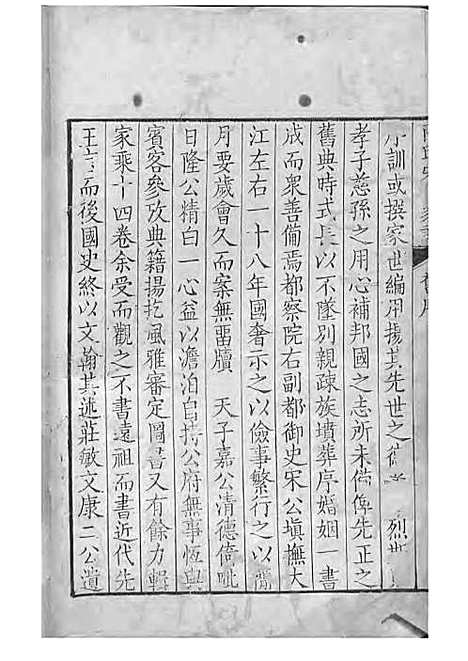 小訓或撰家世編用揚其先世之 烈世
孝子慈孫之用心補邦國之志所未備俾先正之
舊典時式長以不墜別親疎族墳葬序婚姻一書
成而衆善備焉都察院右副都御史宋公塡撫大
江左右一十八年國奢示之以儉事繁行之以簡
月要歲會久而案無畱牘 天子嘉公清德倚毗
日隆公精白一心益以澹泊自持公府無事恆與
賓客參攷典籍揚扢風雅審定圖書又有餘力輯
家乘十四卷余受而觀之不書遠祖而書近代先
王言而後國史終以文翰其述莊敏文康二公遺